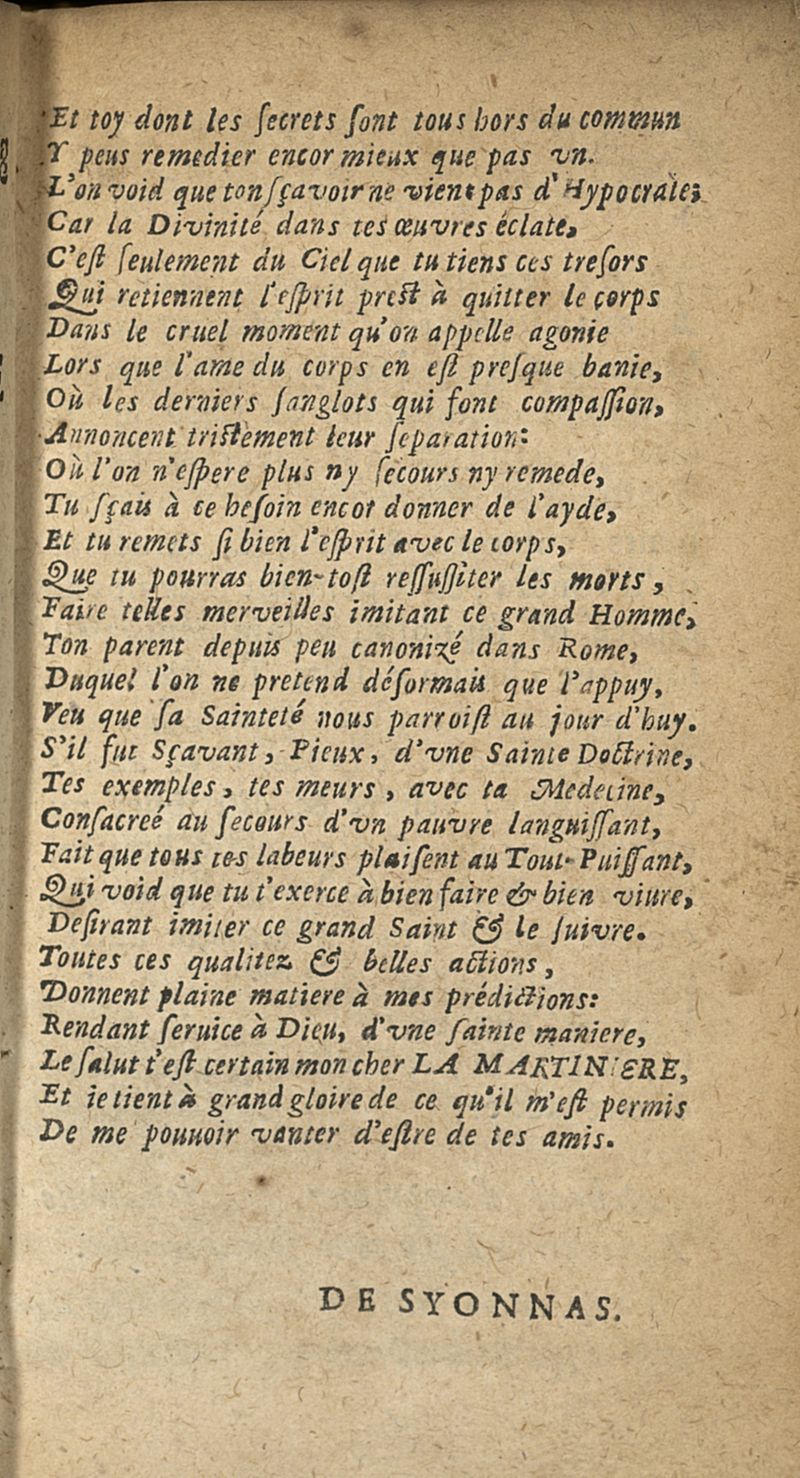 Et toy dont les ſecrets ſont tous hors du commun
Y peus remedier encor mieux que pas vn.
L'on void que ton ſçavoir ne vient pas d'Hypocrate;
Car la Divinité dans tes œuvres éclate,
C'eſt ſeulement du Ciel que tu tiens ces treſors
Qui retiennent l'eſprit preſt à quitter le corps
Dans le cruel moment qu'on appelle agonie
Lors que l'ame du corps en eſt preſque banie,
Où les derniers ſanglots qui font compaſſion,
Annoncent triſtement leur ſeparation:
Où l'on n'eſpere plus ny ſecours ny remede,
Tu ſçais à ce beſoin encor donner de l'ayde,
Et tu remets ſi bien l'eſprit avec le corps,
Que tu pourras bien-toſt reſſuſſiter les morts,
Faire telles merveilles imitant ce grand Homme,
Ton parent depuis peu canonizé dans Rome,
Duquel l'on ne pretend déſormais que l'appuy,
Veu que ſa Sainteté nous parroiſt au jour d'huy.
S'il fut Sçavant, Pieux, d'vne Sainte Doctrine,
Tes exemples, tes meurs, avec ta Medecine,
Conſacreé au ſecours d'vn pauvre languiſſant,
Fait que tous tes labeurs plaiſent au Tout-Puiſſant,
Qui void que tu t'exerce à bien faire & bien viure,
Deſirant imiter ce grand Saint & le ſuivre.
Toutes ces qualitez & belles actions,
Donnent plaine matiere à mes prédictions:
Rendant ſeruice à Dieu, d'vne ſainte maniere,
Le ſalut t'eſt certain mon cher LA MARTINIERE,
Et ie tient à grand gloire de ce qu'il m'eſt permis
De me pouuoir vanter d'eſtre de tes amis.
DE SYONNAS.